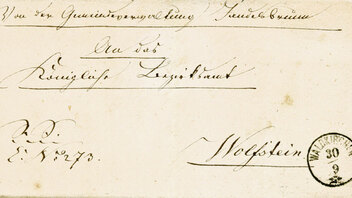 Von der Gemeindeverwaltung Jandelsbrunn
An das
Königliche Bezirksamt
R. S.
E. No 273.
Wolfstein
WALDKIRCHEN
30
9